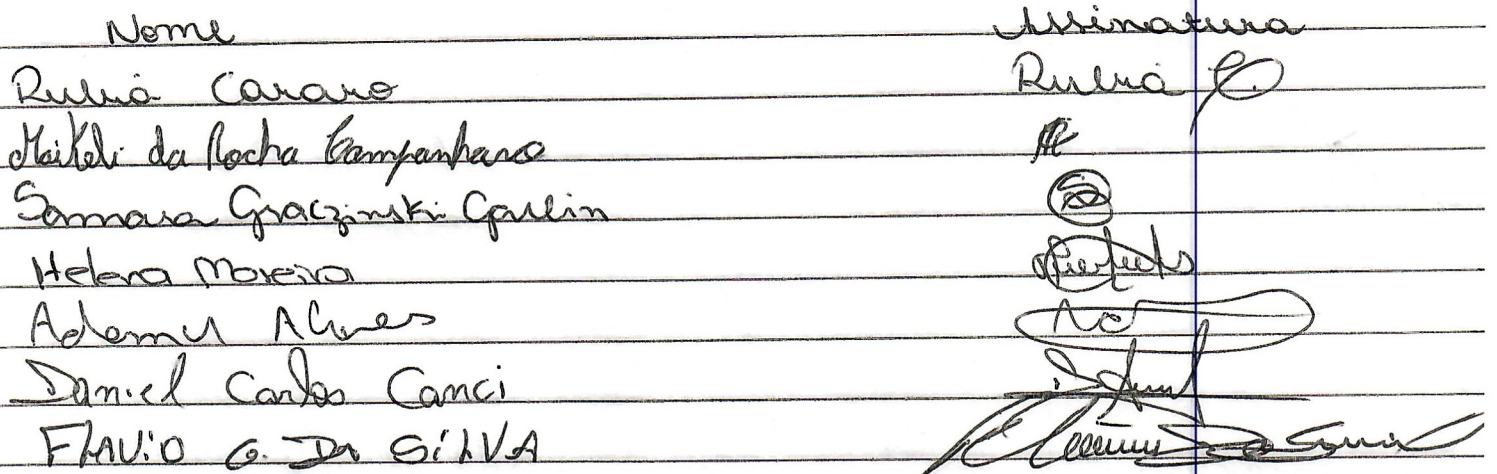 Nome Assinatura
Rubiá Cararo Rubiá
Maikeli da Rocha Campanharo
Samara Graczinski Garlin
Helena Moreira
Ademir Alves
Daniel Carlos Canci
FLAViO G. DA SiLVA